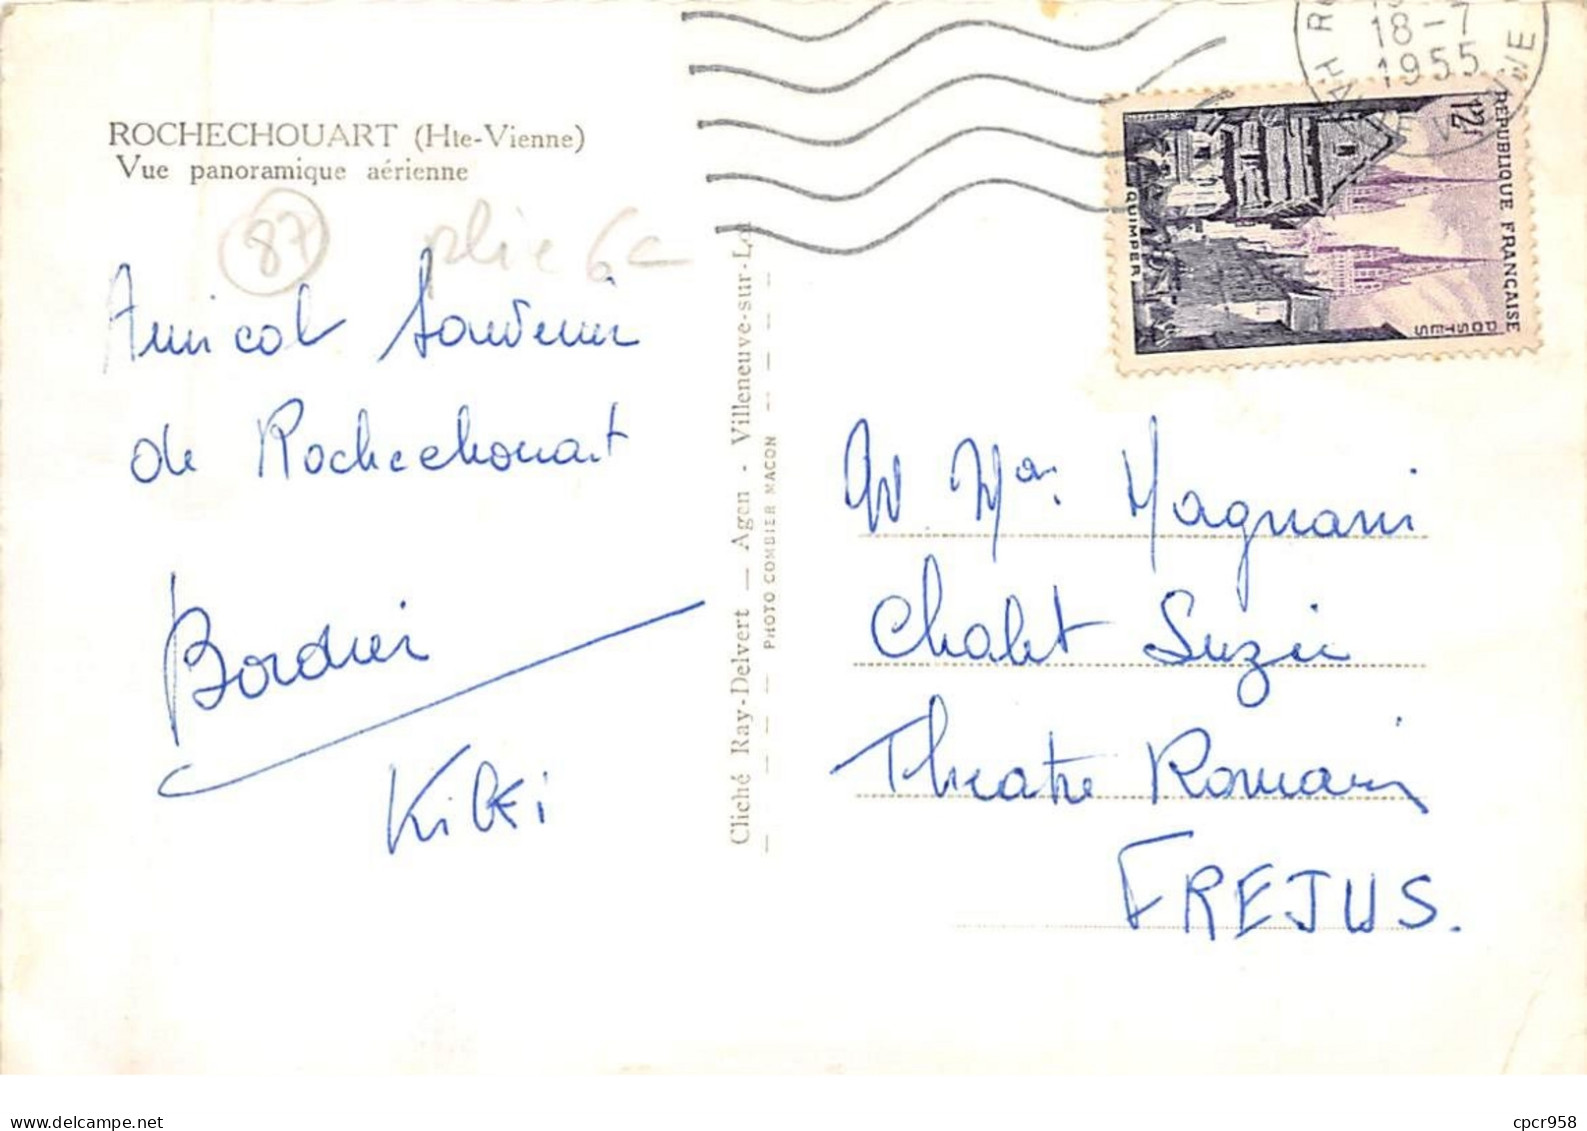 ROCHECHOUART (Hte-Vienne)
Vue panoramique aérienne
87
Amical Souvenir
de Rochechouart
Bordier
Kiki
Cliché Ray-Delvert — Agen - Villeneuve-sur-Lot
PHOTO COMBIER MACON
18-7
1955
12F
RÉPUBLIQUE FRANÇAISE
POSTES
QUIMPER
Magnani
Chalet Suzie
Théatre Romain
FREJUS.
cpcr958